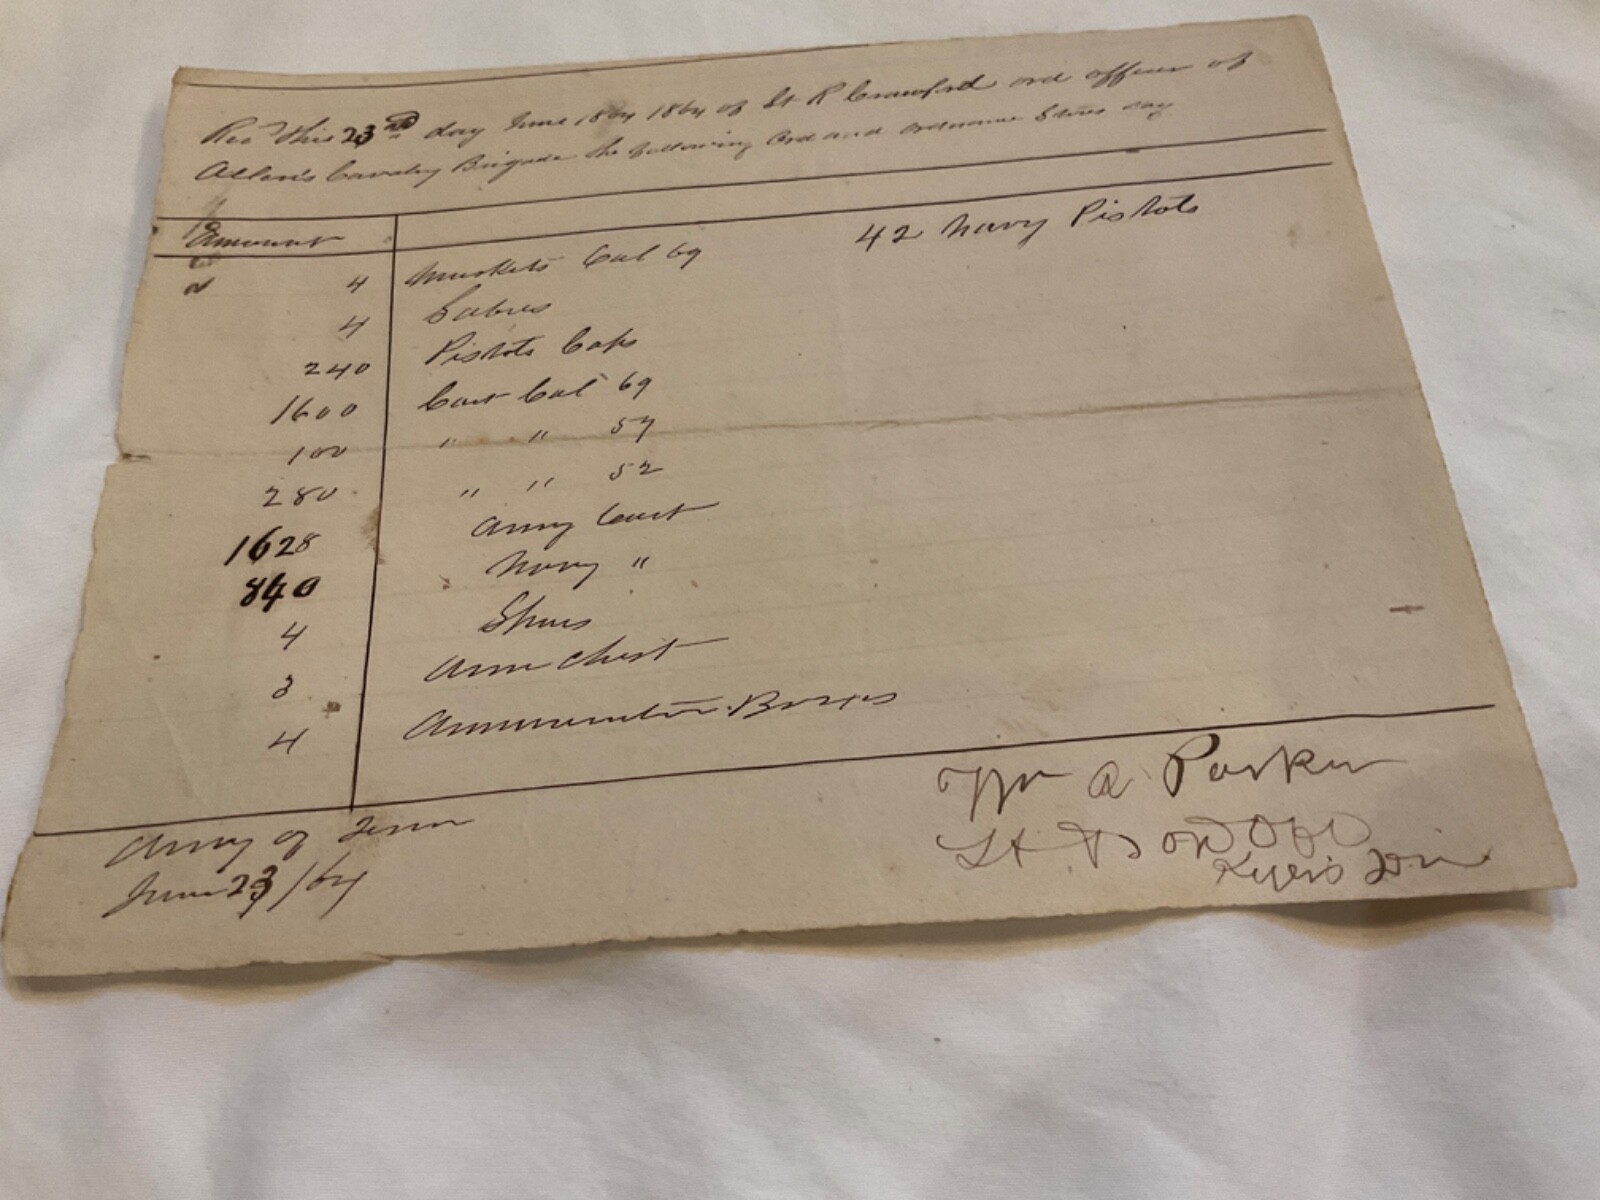 Recd this 23rd day June 1864 1864 of Lt R Crawford ord officer of
Allen's Cavalry Brigade the following Ord and Ordnance Stores say
Amount
4 Muskets Cal 69 42 Navy Pistols
4 Sabres
240 Pistols Caps
1600 Cart Cal 69
100 " " 57
280 " " 52
1628 Army Cart
840 Navy "
4 Spurs
3 Arm Chest
4 Ammunition Boxes
Army of Tenn
June 23/64
Wm A Parker
Lt